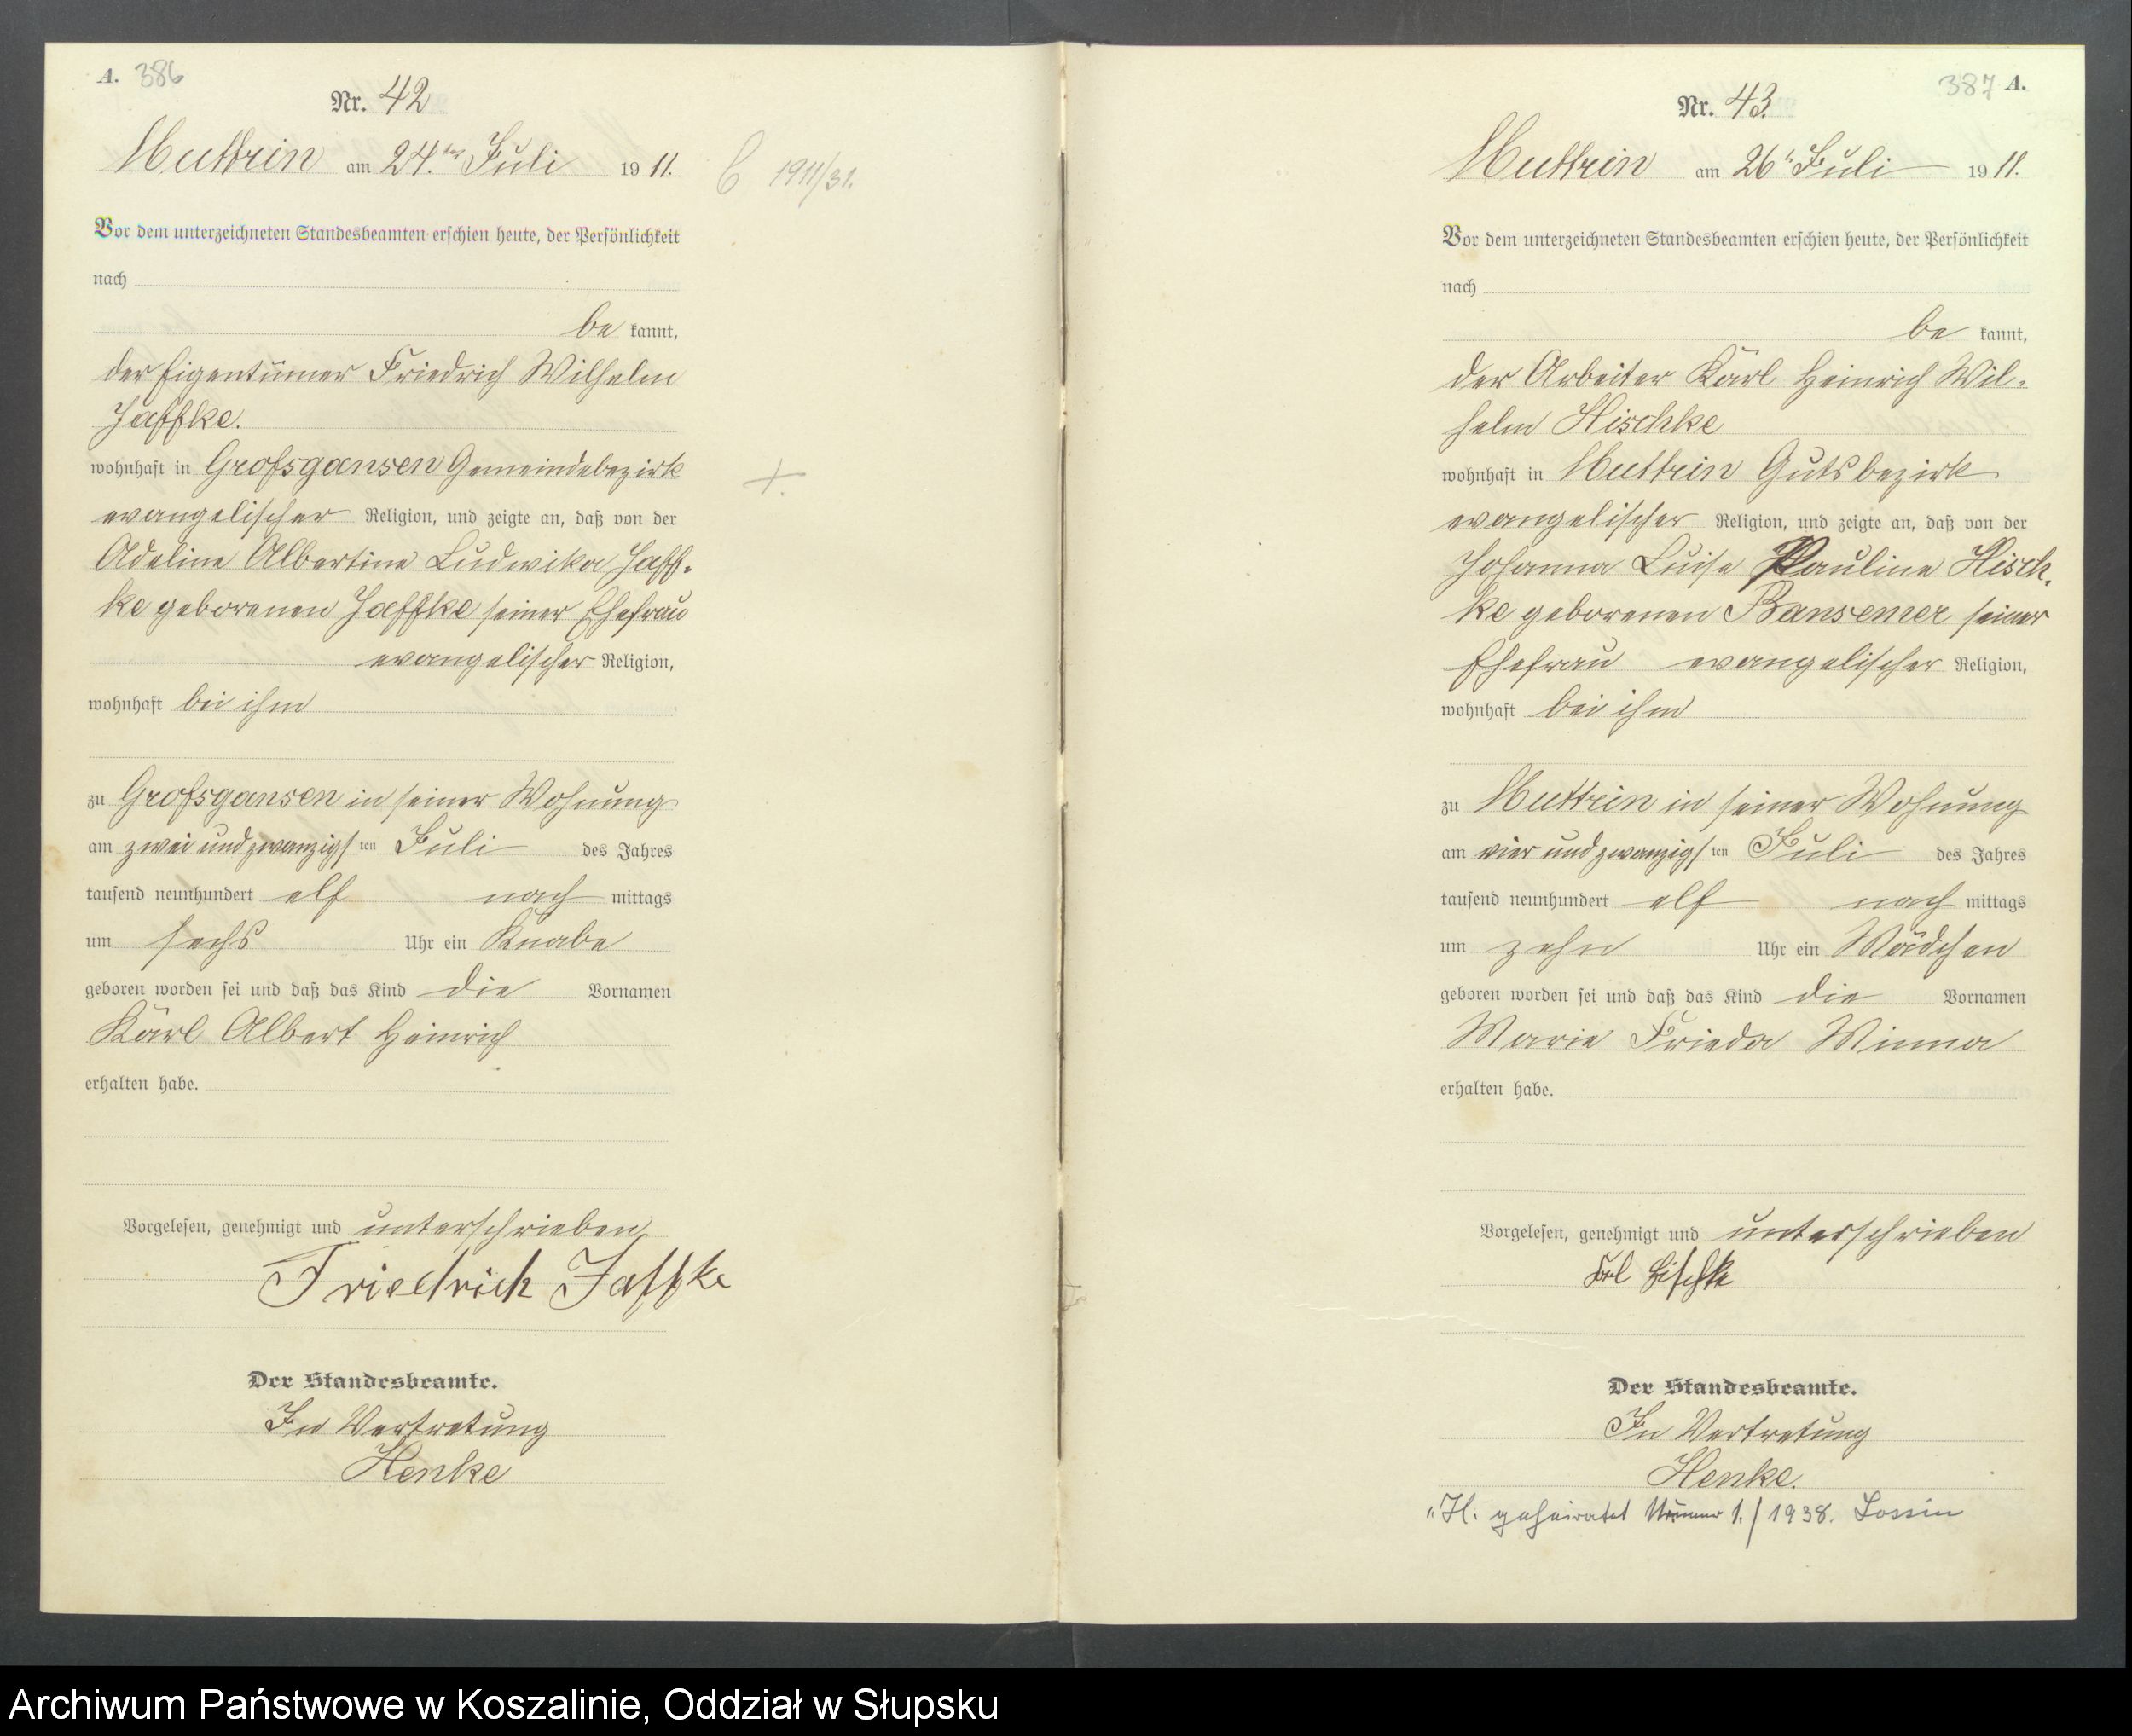 A. 386
Nr. 42
Muttrin am 24.ten Juli 1911.
C 1911/31.
Vor dem unterzeichneten Standesbeamten erschien heute, der Persönlichkeit
nach
be kannt,
der Eigentümer Friedrich Wilhelm
Jaffke.
wohnhaft in Grofsgansen Gemeindebezirk
+
evangelischer Religion, und zeigte an, daß von der
Adeline Albertine Ludwika Jaff-
ke geborenen Jaffke seiner Ehefrau
evangelischer Religion,
wohnhaft bei ihm
zu Grofsgansen in seiner Wohnung
am zwei und zwanzigsten Juli des Jahres
tausend neunhundert elf nach mittags
um sechs Uhr ein Knabe
geboren worden sei und daß das Kind die Vornamen
Karl Albert Heinrich
erhalten habe.
Vorgelesen, genehmigt und unterschrieben
Friedrich Jaffke
Der Standesbeamte.
In Vertretung
Henke
387 A.
Nr. 43.
Muttrin am 26t Juli 1911.
Vor dem unterzeichneten Standesbeamten erschien heute, der Persönlichkeit
nach
be kannt,
der Arbeiter Karl Heinrich Wil-
helm Hischke
wohnhaft in Muttrin Gutsbezirk
evangelischer Religion, und zeigte an, daß von der
Johanna Luise Pauline Hisch-
ke geborenen Bansemer seiner
Ehefrau evangelischer Religion,
wohnhaft bei ihm
zu Muttrin in seiner Wohnung
am vier und zwanzigsten Juli des Jahres
tausend neunhundert elf nach mittags
um zehn Uhr ein Mädchen
geboren worden sei und daß das Kind die Vornamen
Marie Frieda Minna
erhalten habe.
Vorgelesen, genehmigt und unterschrieben
Karl Hischke
Der Standesbeamte.
In Vertretung
Henke.
"H. geheiratet Nummer 1./1938. Lossin
Archiwum Państwowe w Koszalinie, Oddział w Słupsku